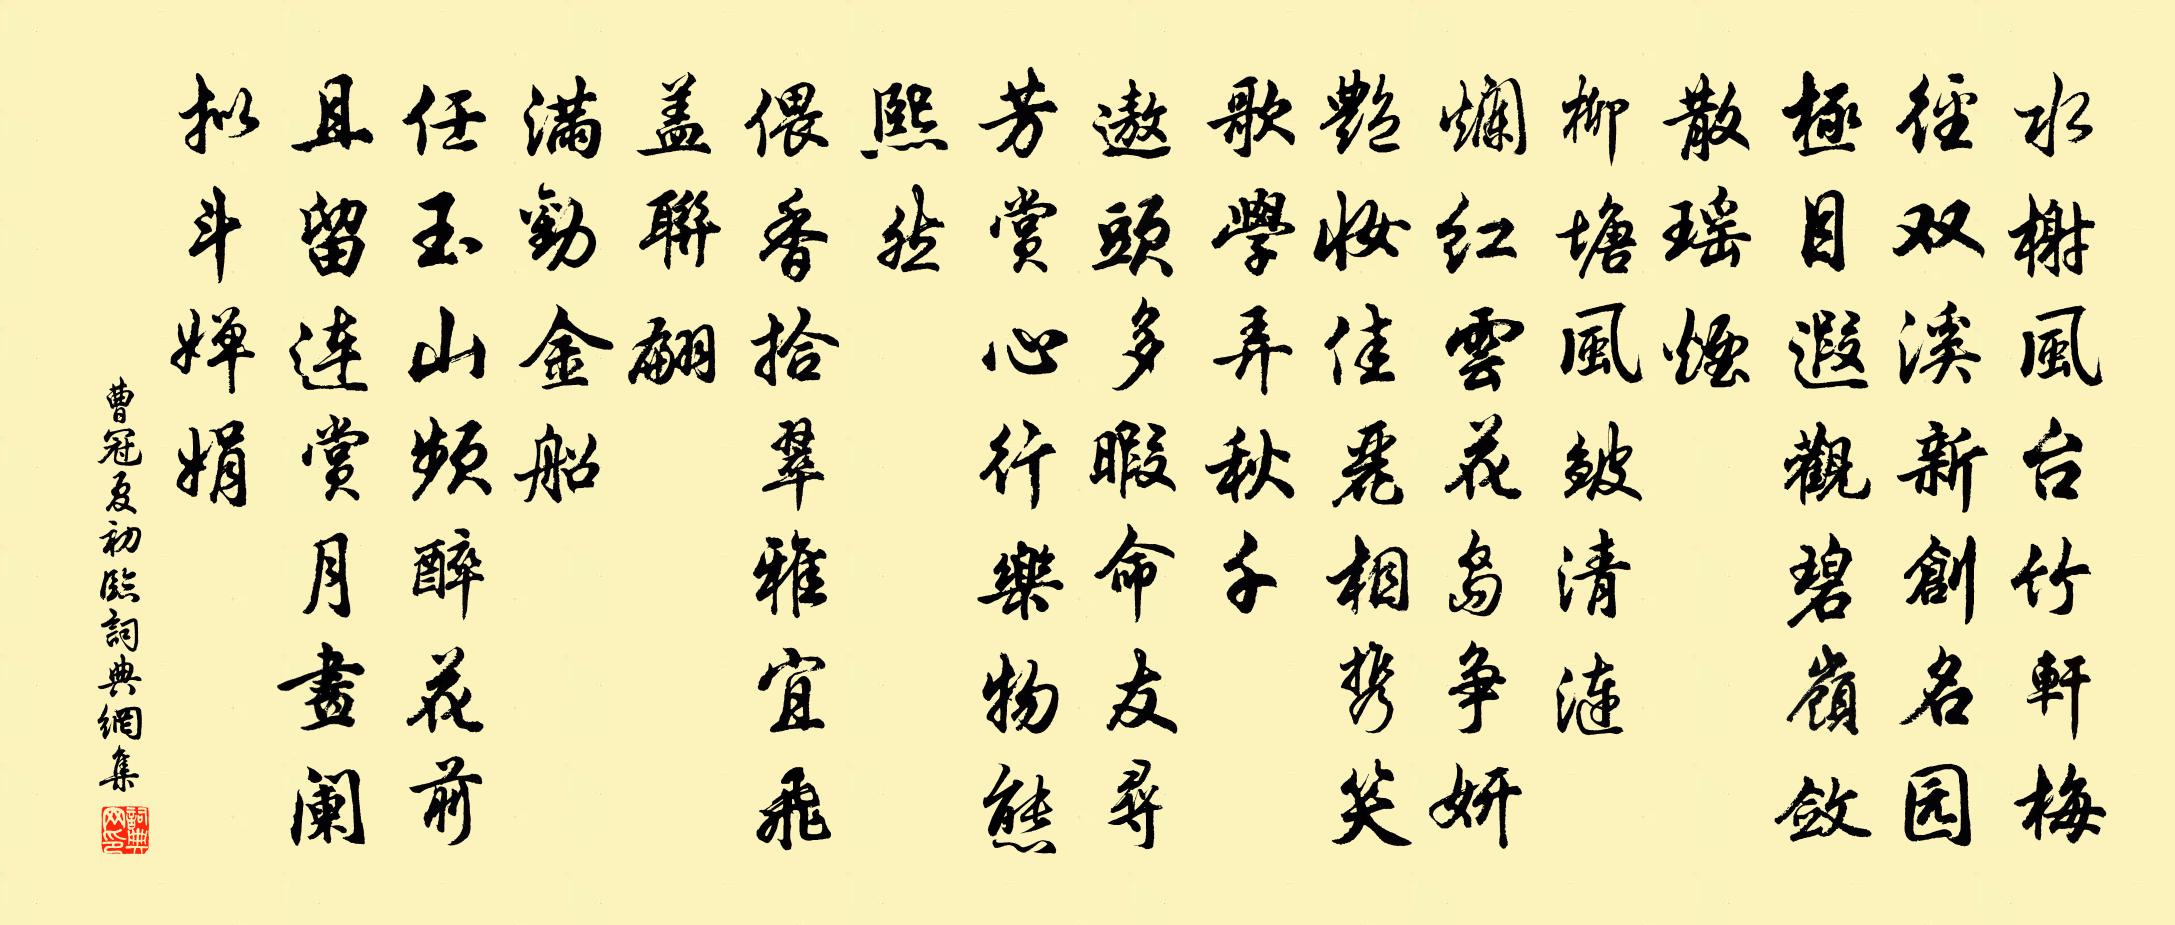 水榭風台竹軒梅
径双溪新創名园
極目遐觀碧嶺斂
散瑶煙
柳塘風皴清漣
爛紅雲花島争妍
艷妝佳麗相携笑
歌學弄秋千
遨頭多暇命友尋
芳賞心行樂物態
熙然
偎香拾翠雅宜飛
盖聯翩
满勸金船
任玉山頻醉花前
且留连賞月畫阑
拟斗婵娟
曹冠夏初臨詞典網集
詞典网印